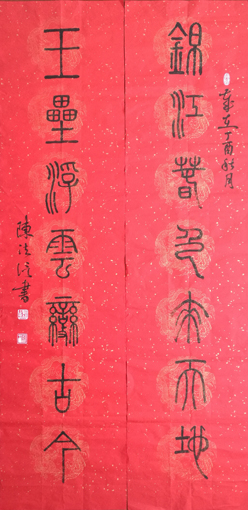 錦江春色来天地
歲在丁酉秋月
玉壘浮雲變古今
陳法谊書